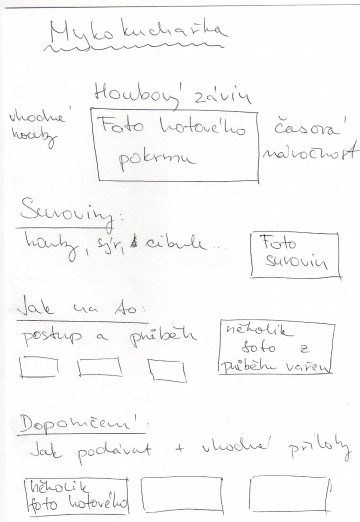 Mykokuchařka
Houbový závin
vhodné
houby
Foto hotového
pokrmu
časová
náročnost
Suroviny:
houby, sýr, cibule...
Foto
surovin
Jak na to:
postup a průběh
několik
foto z
průběhu vaření
Doporučení:
Jak podávat + vhodné přílohy
několik
foto hotového